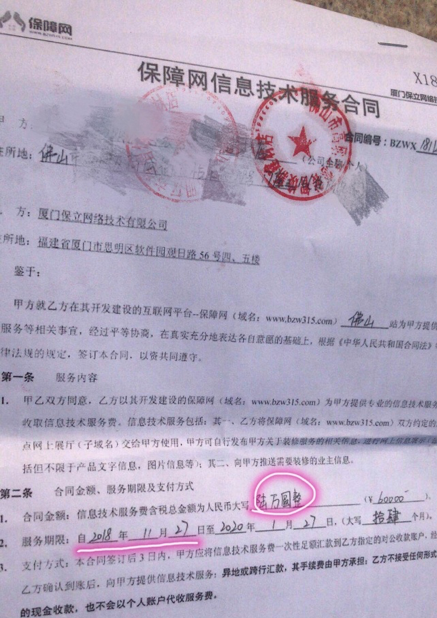 保障网
X18
厦门保立网络
保障网信息技术服务合同
甲 方：
合同编号：BZWX
住所地：佛山
方：厦门保立网络技术有限公司
所地：福建省厦门市思明区软件园观日路 56 号四、五楼
鉴于：
甲方就乙方在其开发建设的互联网平台--保障网（域名：www.bzw315.com） 佛山 站为甲方提供
服务等相关事宜，经过平等协商，在真实充分地表达各自意愿的基础上，根据《中华人民共和国合同法》
律法规的规定，签订本合同，以资共同遵守。
第一条 服务内容
1. 甲乙双方同意，乙方以其开发建设的保障网（域名：www.bzw315.com）为甲方提供专业的信息技术服
收取信息技术服务费。信息技术服务包括：其一、乙方将保障网（域名：www.bzw315.com）双方约定的
点网上展厅（子域名）交给甲方使用，甲方可自行发布甲方关于装修服务的相关信息
括但不限于产品文字信息，图片信息等）；其二、向甲方推送需要装修的业主信息。
第二条 合同金额、服务期限及支付方式
1. 合同金额：信息技术服务费含税总金额为人民币大写 陆万圆整 （￥60000
2. 服务期限：自 2018 年 11 月 27 日至 2020 年 1 月 27 日，（大写 拾肆 个月）。
3. 支付方式：本合同签订后 3 日内，甲方应将信息技术服务费一次性足额汇款到乙方指定的对公收款账户，
乙方确认到账后，向甲方提供信息技术服务；异地或跨行汇款，其手续费由甲方承担；乙方不接受任何形式
的现金收款，也不会以个人账户代收服务费。